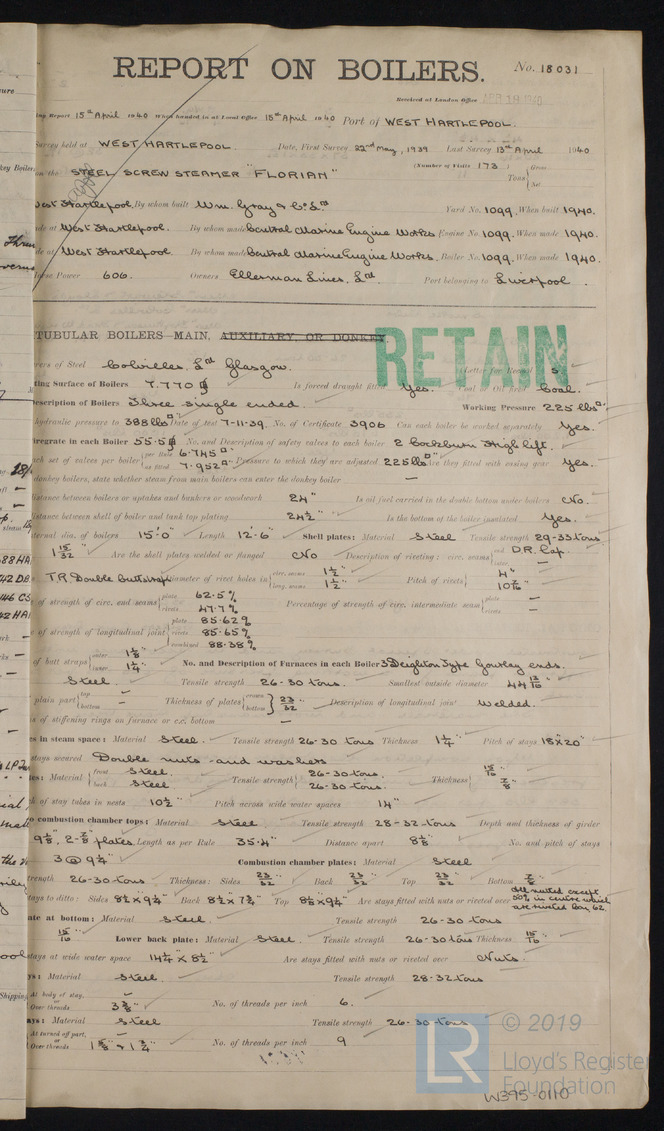 REPORT ON BOILERS. No. 18031
Received at London Office
Report 15th April 1940 When handed in at Local Office 15th April 1940 Port of WEST HARTLEPOOL.
Survey held at WEST HARTLEPOOL. Date, First Survey 22nd May, 1939 Last Survey 13th April 1940
(Number of Visits 173)
on the STEEL SCREW STEAMER "FLORIAN" Tons { Gross Net
West Hartlepool. By whom built Wm. Gray & Co. Ld. Yard No. 1099. When built 1940.
at West Hartlepool. By whom made Central Marine Engine Works Engine No. 1099. When made 1940.
at West Hartlepool. By whom made Central Marine Engine Works. Boiler No. 1099. When made 1940.
Horse Power 606. Owners Ellerman Lines, Ld. Port belonging to Liverpool.
TUBULAR BOILERS MAIN, AUXILIARY, OR DONKEY.
RETAIN
of Steel Colvilles, Ld Glasgow. Letter for Record S.
Heating Surface of Boilers 7,770 Is forced draught fitted Yes. Coal or Oil fired Coal.
Description of Boilers Three single ended. Working Pressure 225 lbs
hydraulic pressure to 388 lbs Date of test 7-11-39. No. of Certificate 3906. Can each boiler be worked separately Yes.
Firegrate in each Boiler 55.5 No. and Description of safety valves to each boiler 2 Cockburn High lift.
each set of valves per boiler { per Rule 6.745 as fitted 7.952 Pressure to which they are adjusted 225 lbs Are they fitted with easing gear Yes.
donkey boilers, state whether steam from main boilers can enter the donkey boiler —
distance between boilers or uptakes and bunkers or woodwork 24" Is oil fuel carried in the double bottom under boilers No.
distance between shell of boiler and tank top plating 24½" Is the bottom of the boiler insulated Yes.
internal dia. of boilers 15'0" Length 12'-6" Shell plates: Material Steel Tensile strength 29-33 tons
1 15/32" Are the shell plates welded or flanged No Description of riveting: circ. seams { end D.R. Lap.
T.R. Double butt straps Diameter of rivet holes in { circ. seams 1½" long. seams 1½" Pitch of rivets { 4"
of strength of circ. end seams { plate 62.5% rivets 47.7% Percentage of strength of circ. intermediate seam { plate — rivets —
of strength of longitudinal joint { plate 85.62% rivets 85.65% combined 88.38%
of butt straps { outer 1⅛" inner 1¼" No. and Description of Furnaces in each Boiler 3 Deighton Type Gourlay ends.
Steel. Tensile strength 26-30 tons. Smallest outside diameter 44 13/16"
plain part { top — bottom — Thickness of plates { crown bottom } 23/32" Description of longitudinal joint Welded.
of stiffening rings on furnace or c.c. bottom —
in steam space: Material Steel. Tensile strength 26-30 tons Thickness 1¼" Pitch of stays 18 x 20"
stays secured Double nuts and washers
Material { front Steel. back Steel. Tensile strength { 26-30 tons. 26-30 tons. Thickness { 15/16" ⅞"
of stay tubes in nests 10½" Pitch across wide water spaces 14"
combustion chamber tops: Material Steel Tensile strength 28-32 tons Depth and thickness of girder
9⅛", 2-⅞" plates. Length as per Rule 35.4" Distance apart 8⅛" No. and pitch of stays
3 @ 9¼" Combustion chamber plates: Material Steel
strength 26-30 tons Thickness: Sides 23/32" Back 23/32" Top 23/32" Bottom ⅞"
stays to ditto: Sides 8½" x 9¼" Back 8½" x 7¾" Top 8½" x 9¼" Are stays fitted with nuts or riveted over All nutted except 50% in centre which are riveted
plate at bottom: Material Steel. Tensile strength 26-30 tons
15/16" Lower back plate: Material Steel. Tensile strength 26-30 tons Thickness 15/16"
stays at wide water space 14¼" x 8½" Are stays fitted with nuts or riveted over Nuts.
Material Steel. Tensile strength 28-32 tons
At body of stay, or Over threads 3⅜" No. of threads per inch 6.
Material Steel Tensile strength 26-30 tons
At turned off part, or Over threads 1⅝" & 1¾" No. of threads per inch 9
LR © 2019
Lloyd's Register
Foundation
W395-0110